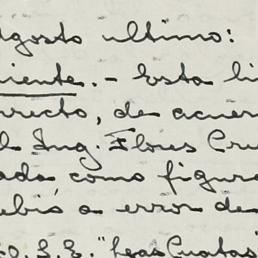 Agosto ultimo:
iente. - Esta li
recto, de acuer
l Ing. Flores Cru
ada como figura
ebió a error de
S. E. "Las Cuatas"